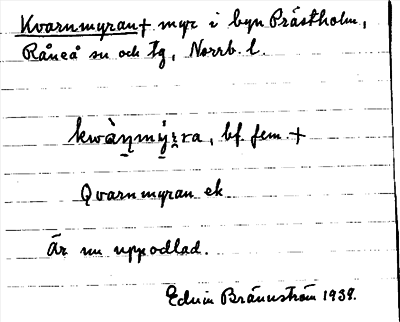 Kvarnmyran + myr i byn Prästholm,
Råneå sn och tg, Norrb. l.
kwàn̥mýr̥ra, bf. fem. +
Qvarnmyran ek
Är nu uppodlad.
Edvin Brännström 1939.